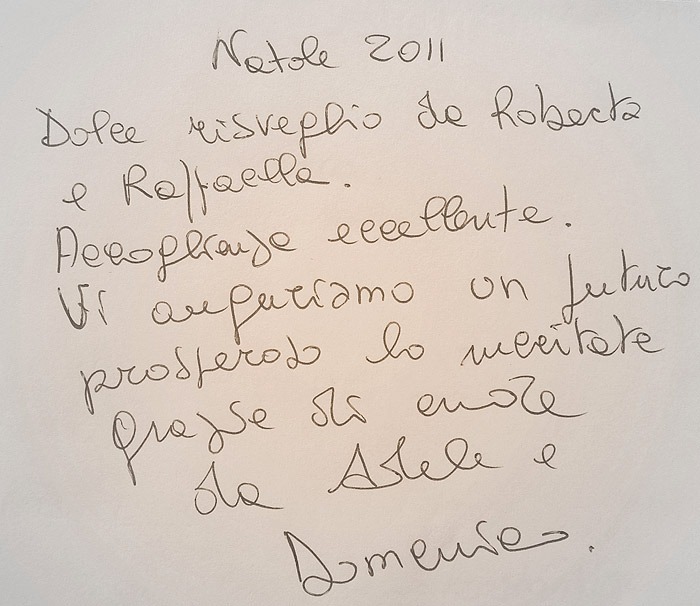 Natale 2011
Dolce risveglio da Roberta
e Raffaella.
Accoglienza eccellente.
Vi auguriamo un futuro
prosperoso lo meritate
grazie di cuore
da Adele e
Domenico.